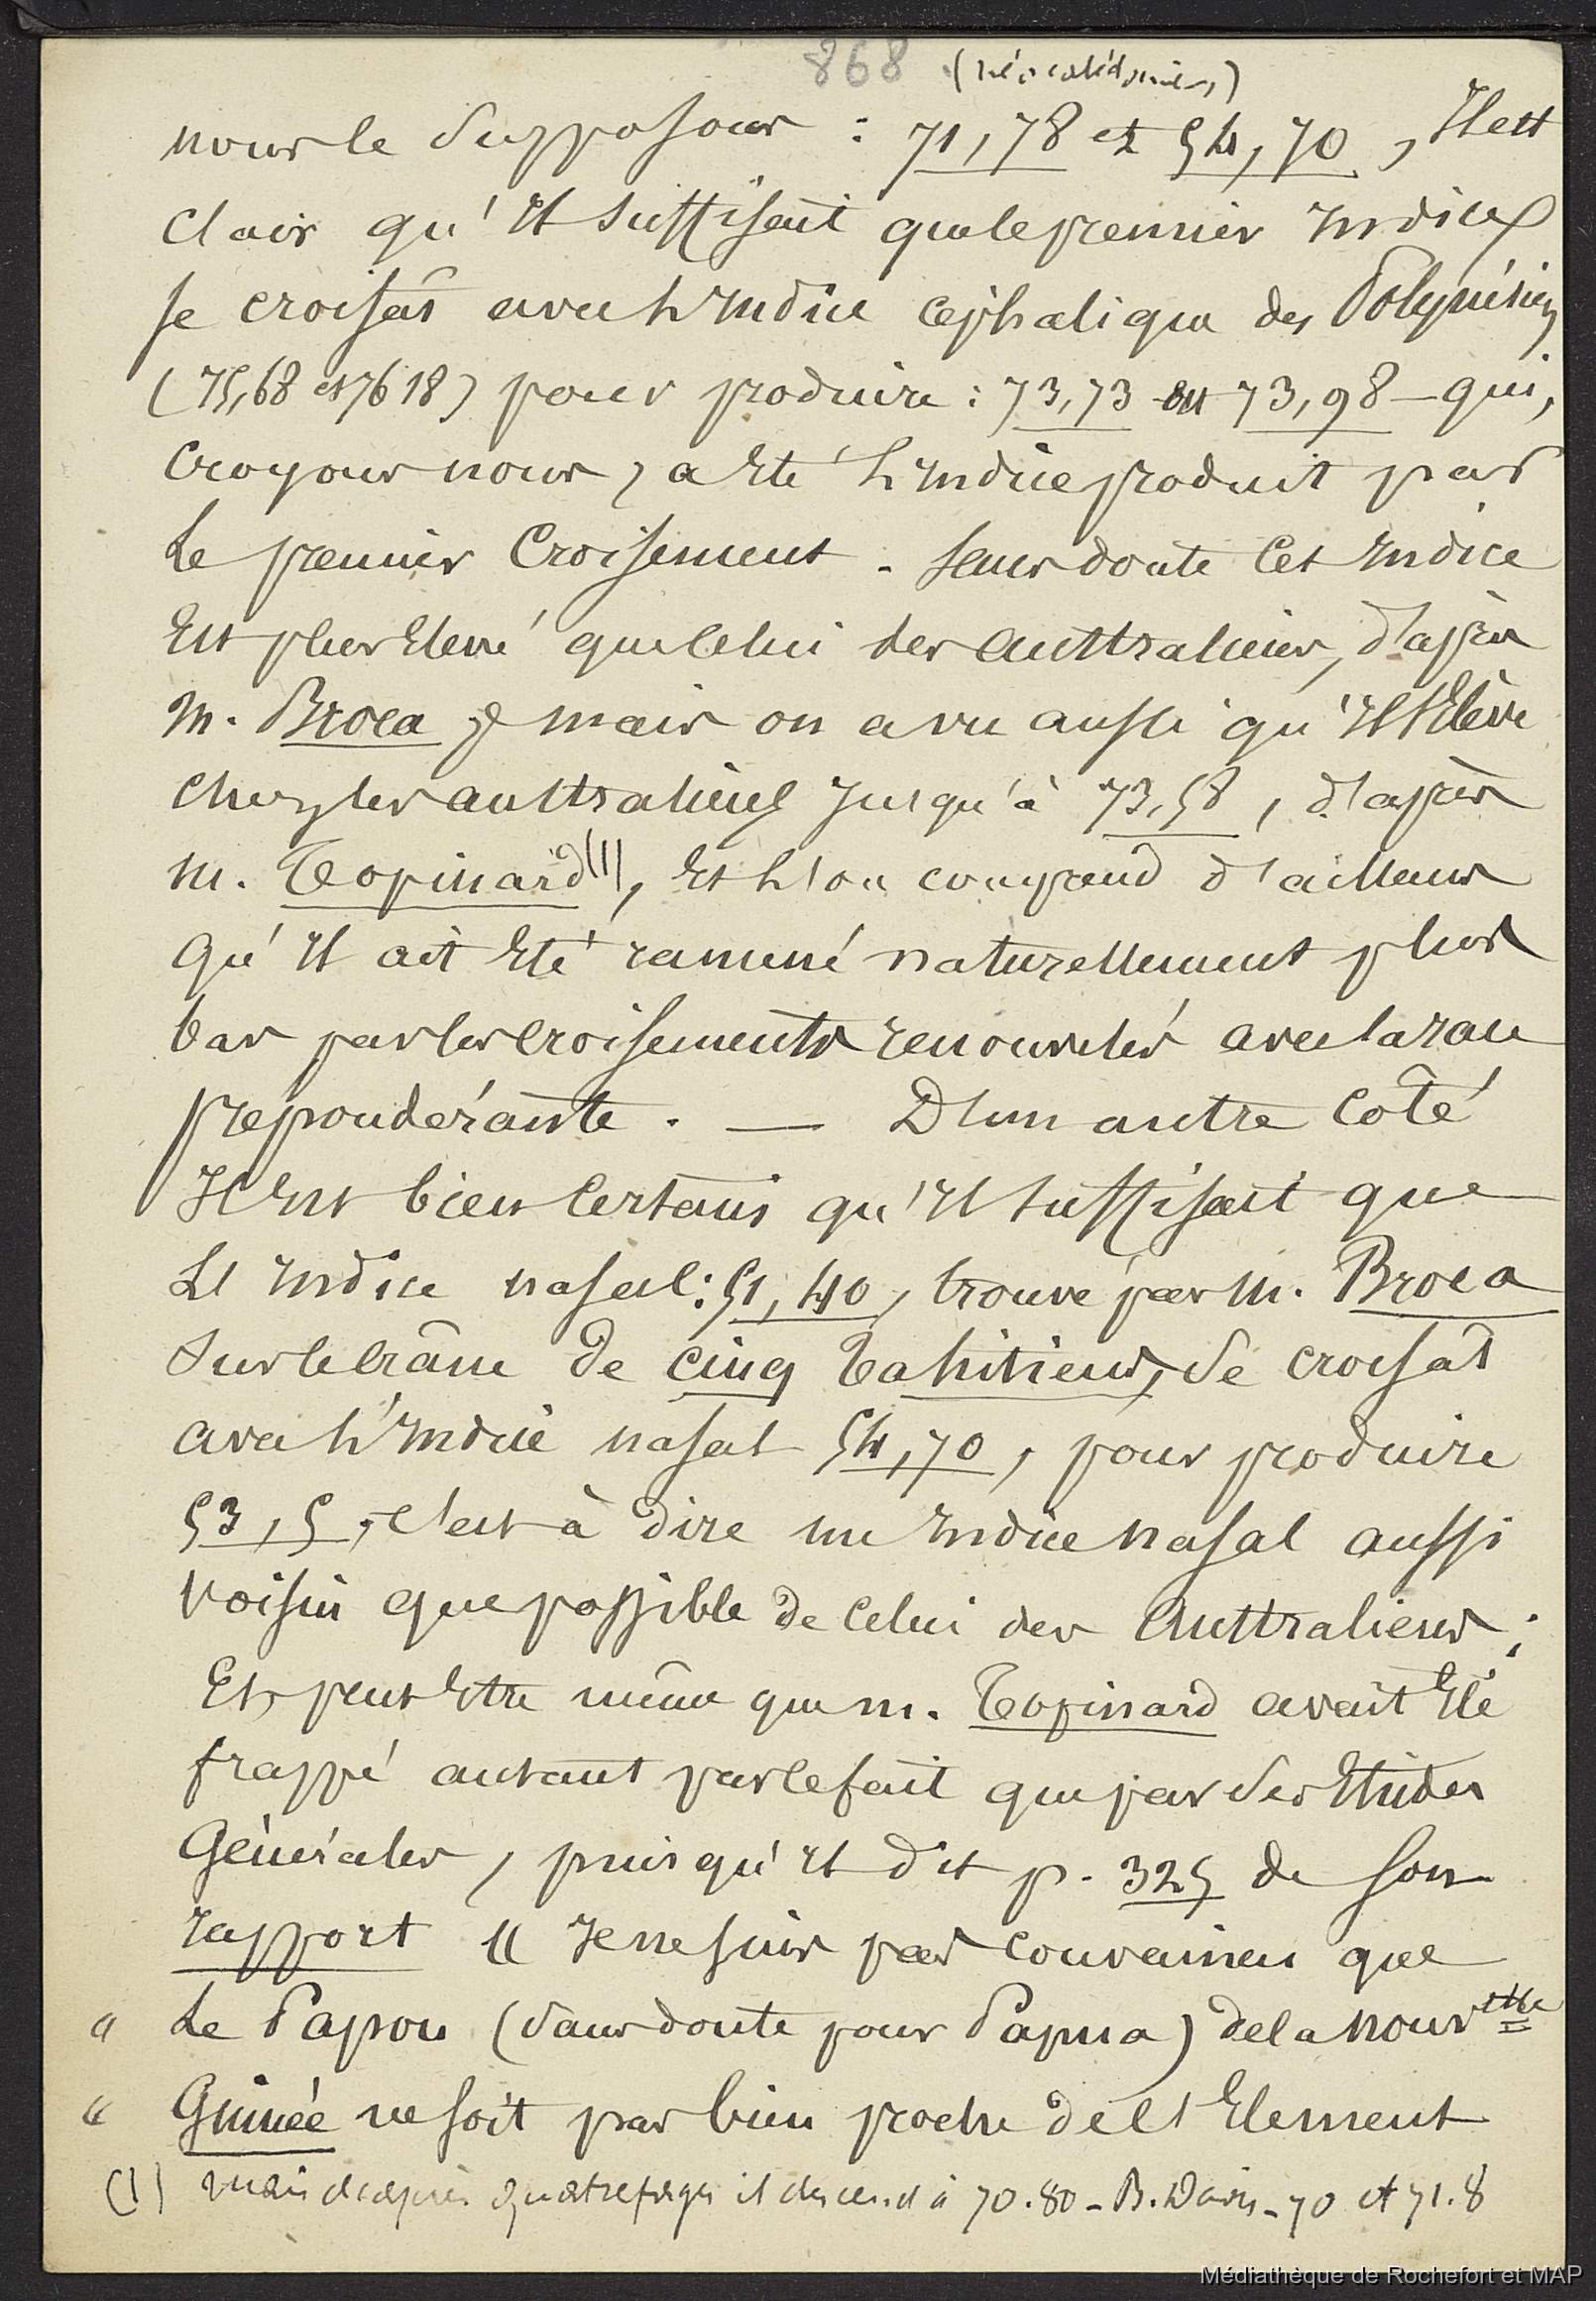 868 (Néocalédoniens)
nous le supposons : 71,78 et 54,70, Il est
clair qu'il suffisait que le premier Indice
se croisât avec l'Indice céphalique des Polynésiens
(75,68 et 76 18) pour produire : 73,73 ou 73,98 — qui,
croyons nous, a Eté l'Indice produit par
le premier Croisement. Sans doute Cet Indice
Est plus Elevé que Celui des Australiens, d'après
M. Broca ; mais on a vu aussi qu'il s'Elève
chez les australiens jusqu'à 73,58, d'après
M. Topinard (1), Et l'on comprend d'ailleurs
qu'il ait Eté ramené naturellement plus
bas par les croisements renouvelés avec la race
préponderante. — D'un autre Côté
Il Est bien Certain qu'il suffisait que
L'Indice nasal : 51,40, trouvé par M. Broca
sur le crâne de cinq Tahitiens, se croisât
avec l'Indice nasal 54,70, pour produire
53,5, c'est à dire un Indice nasal aussi
voisin que possible de Celui des Australiens ;
Et peut Etre même que M. Topinard avait Eté
frappé autant par le fait que par ses Etudes
Générales, puisqu'il dit p. 325 de son
rapport « Je ne suis pas convaincu que
« Le Papou (sans doute pour Papua) de la Nouvelle
« Guinée ne soit pas bien proche de l'Element
(1) mais d'après Quatrefages il descend à 70.80 - B. Davis - 70 et 71.8
Médiathèque de Rochefort et MAP